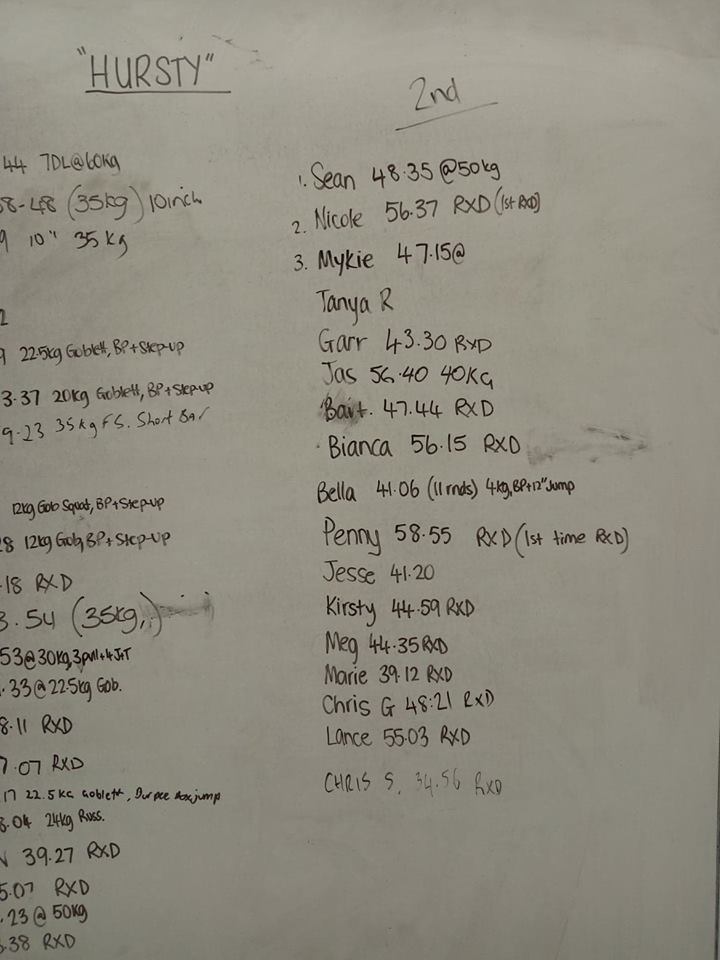 "HURSTY"
44 7DL@60kg
8-48 (35kg) 10inch
9 10" 35 kg
2
9 22.5kg Goblett, BP+Step-up
3.37 20kg Goblett, BP+Step-up
9.23 35kg FS. Short Bar
12kg Gob Squat, BP+Step-up
28 12kg Gob, BP+Step-up
.18 RXD
3.54 (35kg,.)
53@30kg, 3pull+4J+T
.33@22.5kg Gob.
8.11 RXD
7.07 RXD
17 22.5KG Goblett, Burpee Boxjump
3.04 24kg Russ.
39.27 RXD
5.07 RXD
.23@50kg
.38 RXD
2nd
1. Sean 48.35 @50kg
2. Nicole 56.37 RXD (1st RXD)
3. Mykie 47.15@
Tanya R
Garr 43.30 RXD
Jas 56.40 40KG
Bait. 47.44 RXD
Bianca 56.15 RXD
Bella 41.06 (11rnds) 4kg, BP+12" Jump
Penny 58.55 RXD (1st time RXD)
Jesse 41.20
Kirsty 44.59 RXD
Meg 44.35 RXD
Marie 39.12 RXD
Chris G 48:21 RXD
Lance 55.03 RXD
CHRIS S. 34.56 RXD